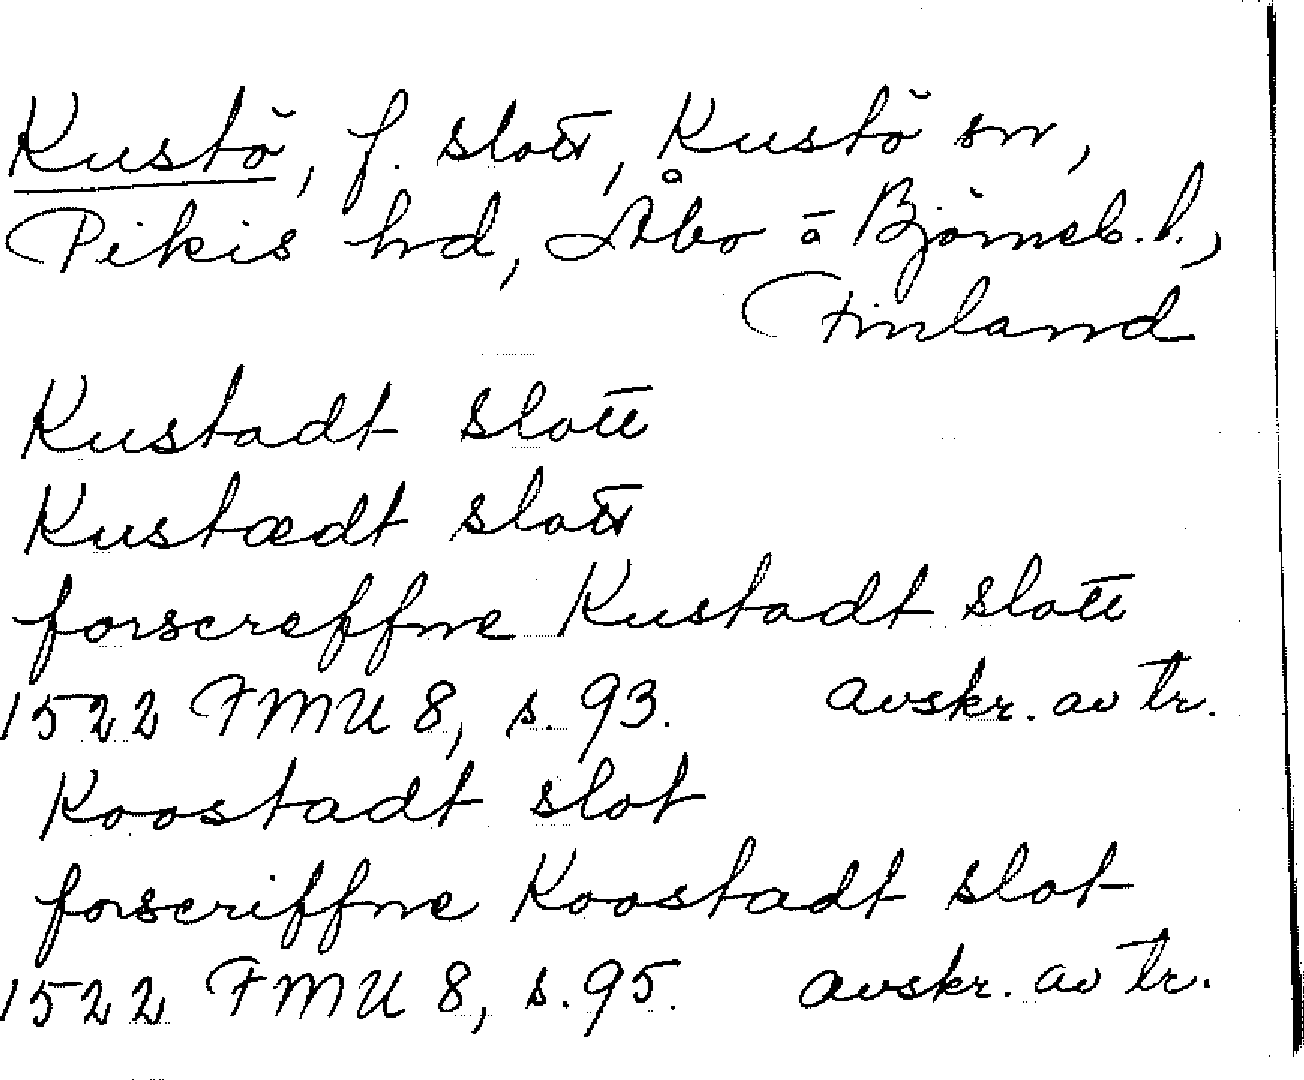 Kustö, f. slott, Kustö sn,
Pikis hd, Åbo o Björneb. l.,
Finland
Kustadt slott
Kustædt slott
forscreffne Kustadt slott
1522 FMU 8, s. 93. avskr. av tr.
Koostadt slot
forscriffne Koostadt slot
1522 FMU 8, s. 95. avskr. av tr.